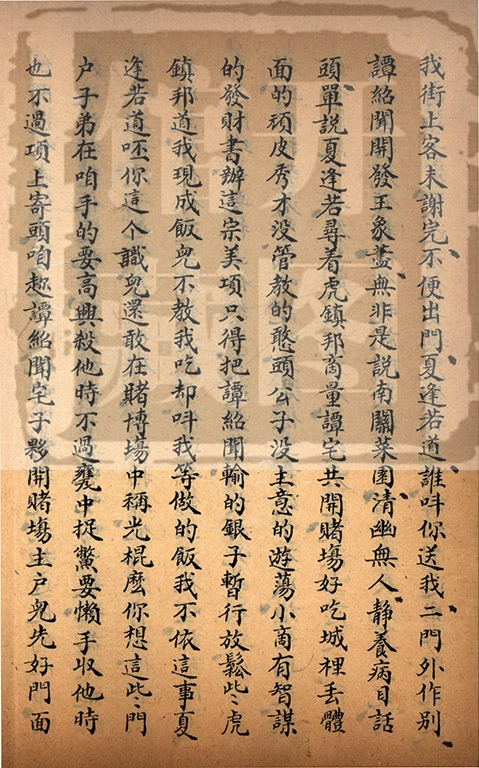 我街上客未謝完不便出門夏逢若道誰呌你送我二門外作别
譚紹聞開發王象藎無非是說南關菜園清幽無人静養病目話
頭單説夏逢若尋着虎鎮邦商量譚宅共開賭塲好吃城裡丢體
面的頑皮秀才没管教的憨頭公子没主意的游蕩小商有智謀
的發財書辦這宗美項只得把譚紹聞輸的銀子暫行放鬆些〻虎
鎮邦道我現成飯兒不教我吃却呌我等做的飯我不依這事夏
逢若道呸你這个識兒還敢在賭博塲中稱光棍麽你想這些〻門
户子弟在咱手的要高興殺他時不過甕中捉鱉要懶手収他時
也不過項上寄頭咱趂譚紹聞宅子夥開賭塲主户兒先好門面